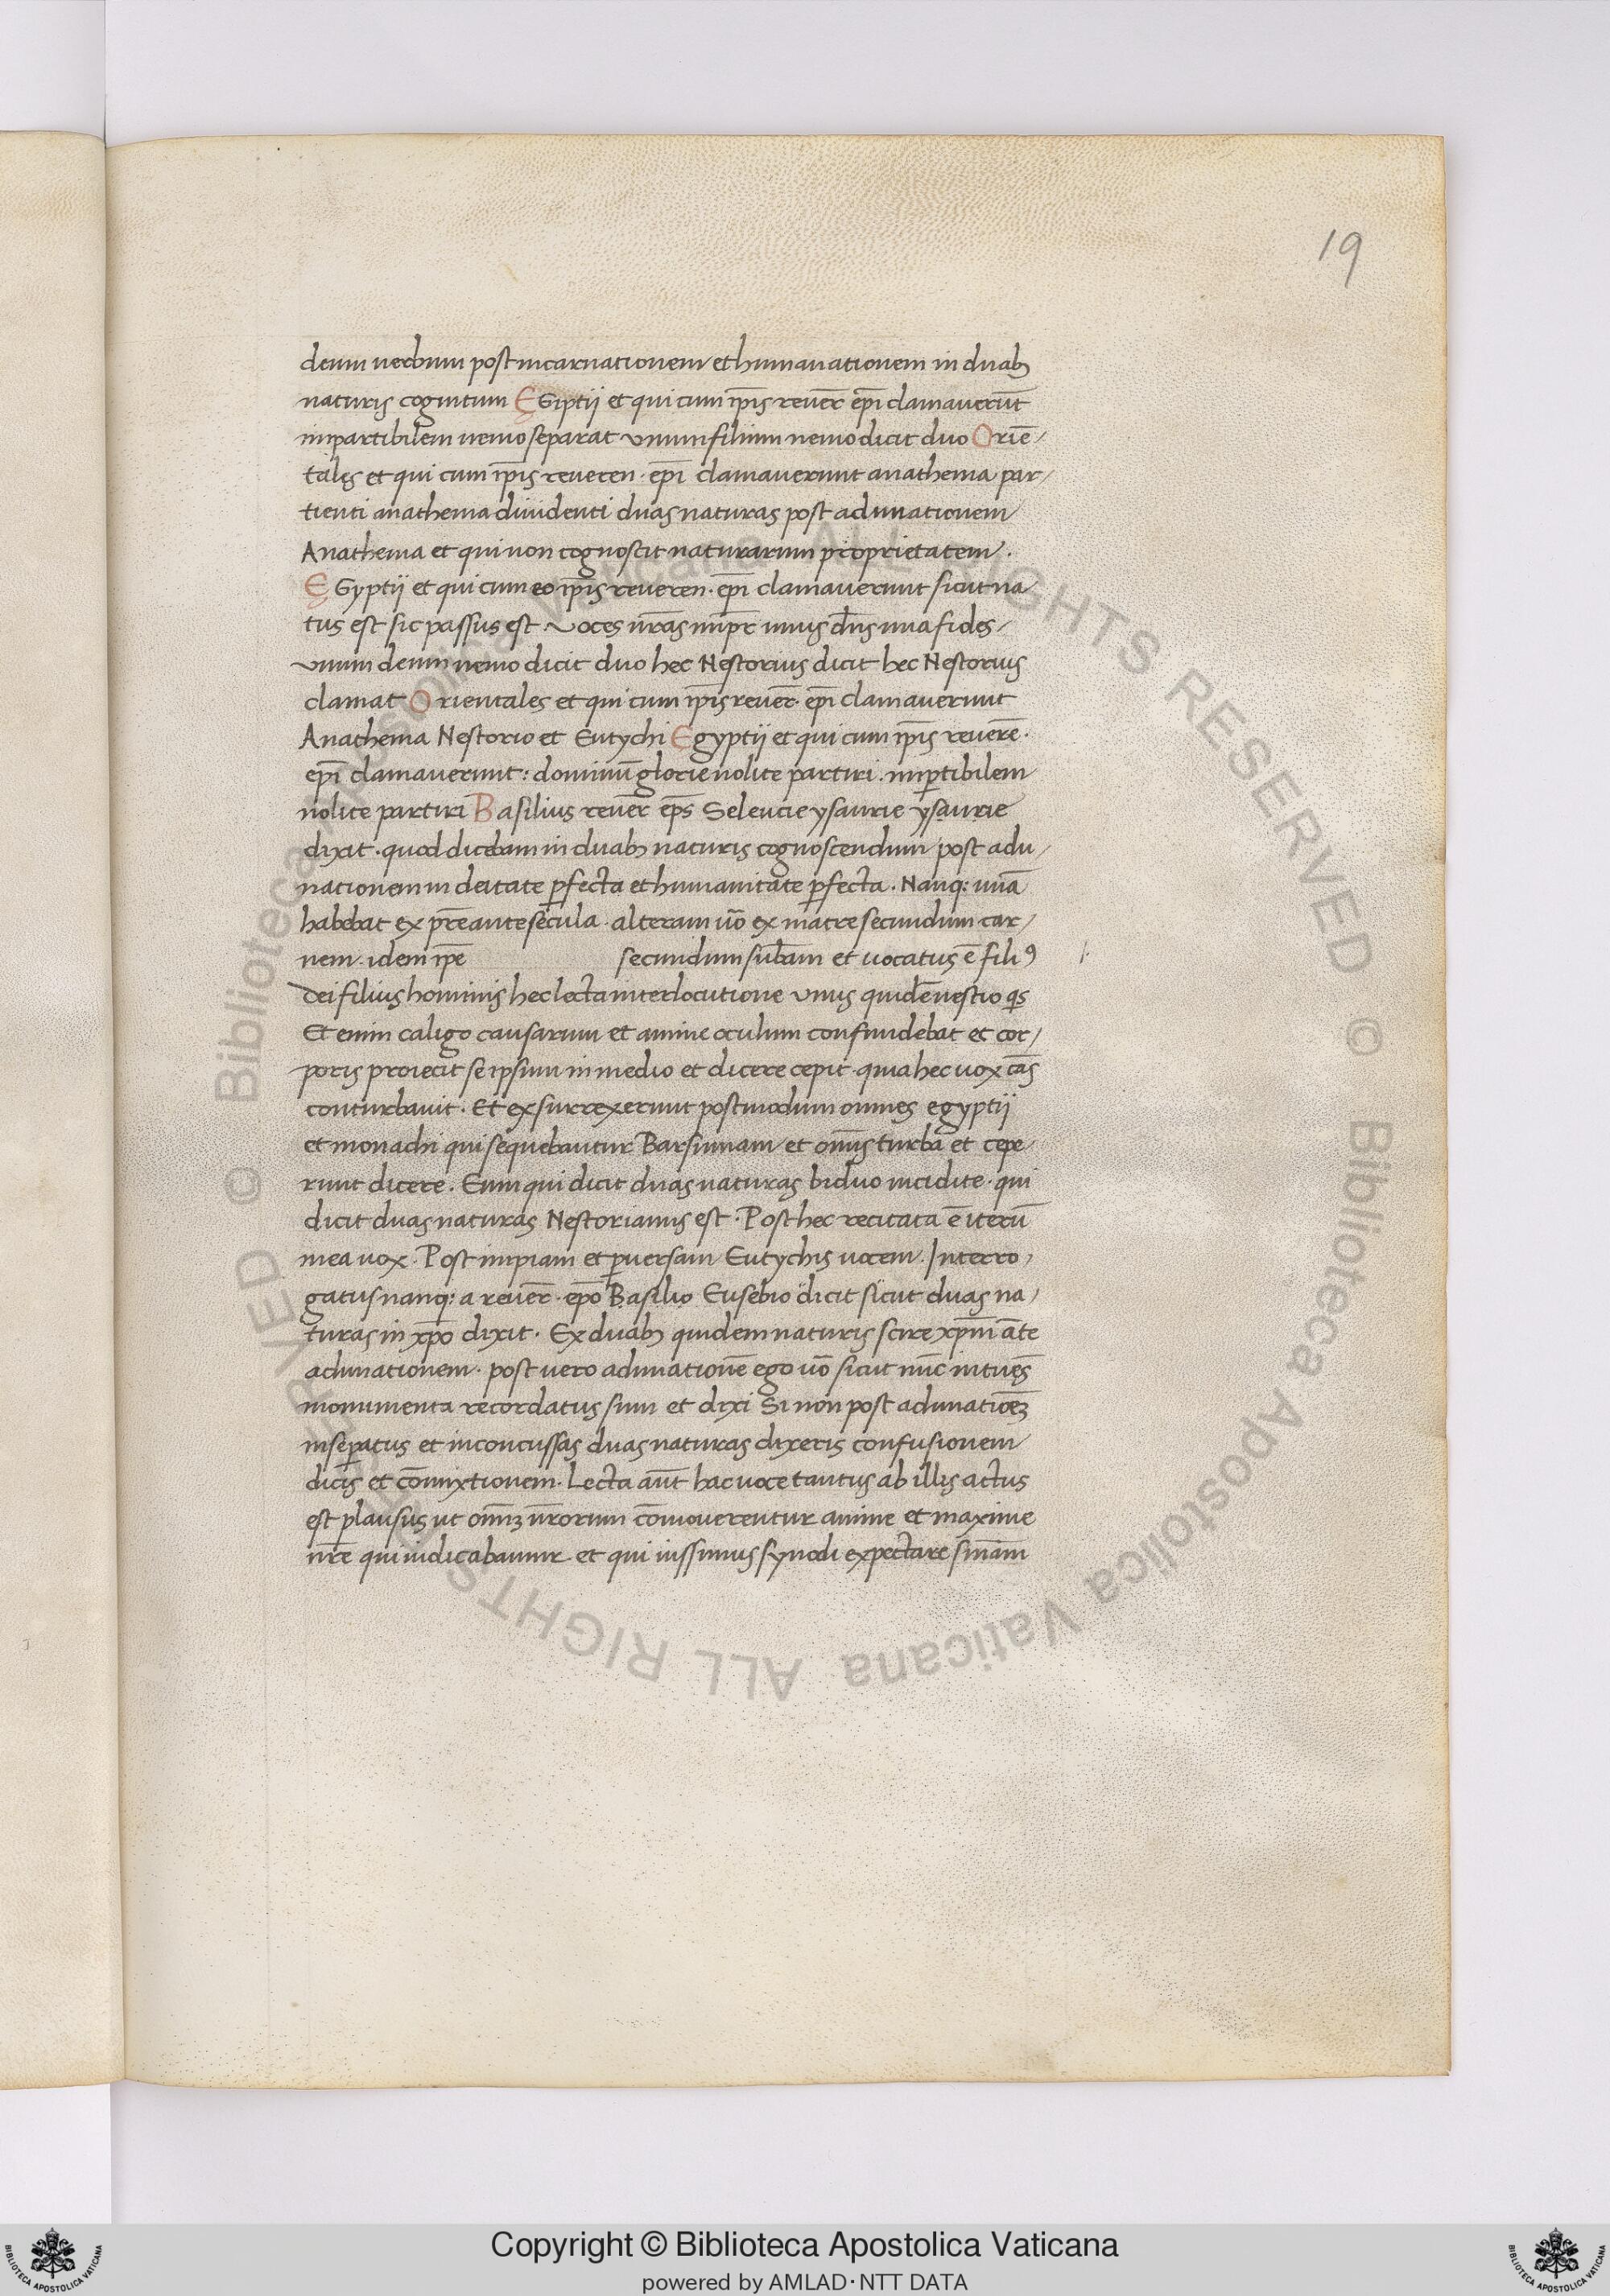 19
deum uerbum post incarnationem et humanationem in duabꝫ
naturis cognitum EGiptii et qui cum ip̄is reuer̄ ep̄i clamauerūt
inpartibilem nemo separat vnum filium nemo dicit duo Oriē-
tales et qui cum ip̄is reueren. ep̄i clamauerunt anathema par-
tienti anathema diuidenti duas naturas post adunationem
Anathema et qui non cognoscit naturarum proprietatem.
EGyptii et qui cum eo ip̄is reueren. ep̄i clamauerunt sicut na
tus est sic passus est. Voces nr̄as imp̄r unus dn̄s una fides
vnum deum nemo dicit duo hec Nestorius dicit hec Nestorius
clamat Orientales et qui cum ip̄is reuer̄. ep̄i clamauerunt
Anathema Nestorio et Eutychi Egyptii et qui cum ip̄is reuerē.
ep̄i clamauerunt: dominū glorie nolite partiri. imꝑtibilem
nolite partiri Basilius reuer̄ ep̄s Seleucie ysaurie ysaurie
dixit. quod dicebam in duabꝫ naturis cognoscendum post adu-
nationem in deitate ꝑfecta et humanitate ꝑfecta. Nanq: unā
habebat ex pr̄e ante secula. alteram uō ex matre secundum car-
nem. idem ip̄e secundum sub̄am et uocatus ē filiꝰ
dei filius hominis hec lecta interlocutione vnus quidē uestio qs
Et enim caligo causarum et anime oculum confundebat et cor-
poris proiecit se ipsum in medio et dicere cepit. quia hec uox cās
conturbauit. Et exsurrexerunt postmodum omnes egyptii
et monachi qui sequebantur Barsumam et om̄is turba et cepe-
runt dicere. Eum qui dicit duas naturas biduo incidite. qui
dicit duas naturas Nestorianus est. Post hec recitata ē iterū
mea uox. Post impiam et ꝑuersam Eutychis uocem. Interro-
gatus nanq: a reuer̄. ep̄o Basilio Eusebio dicit sicut duas na-
turas in xp̄o dixit. Ex duabꝫ quidem naturis scire xp̄m āte
adunationem. post uero adunationē ego uō sicut nūc intuēs
monumenta recordatus sum et dixi Si non post adunatiōeꝫ
inseꝑatus et inconcussas duas naturas dixeris confusionem
dicis et cōmixtionem. Lecta aūt hac uoce tantus ab illis actus
est plausus ut om̄iꝫ nr̄orum cōmouerentur anime et maxime
nr̄e qui iudicabamur. et qui iussimus synodi expectare sn̄iam